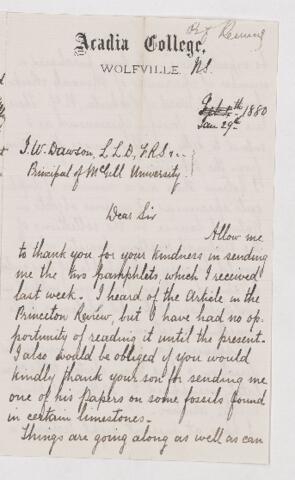 Acadia College,
WOLFVILLE. NS.
Feb 4th 1880
Jan 29th
J. W. Dawson, L L D, F R S &c.
Principal of McGill University.
Dear Sir
Allow me
to thank you for your kindness in sending
me the two pamphlets, which I received
last week. I heard of the Article in the
Princeton Review, but I have had no op-
portunity of reading it until the present.
I also would be obliged if you would
kindly thank your son for sending me
one of his papers on some fossils found
in certain limestones.
Things are going along as well as can